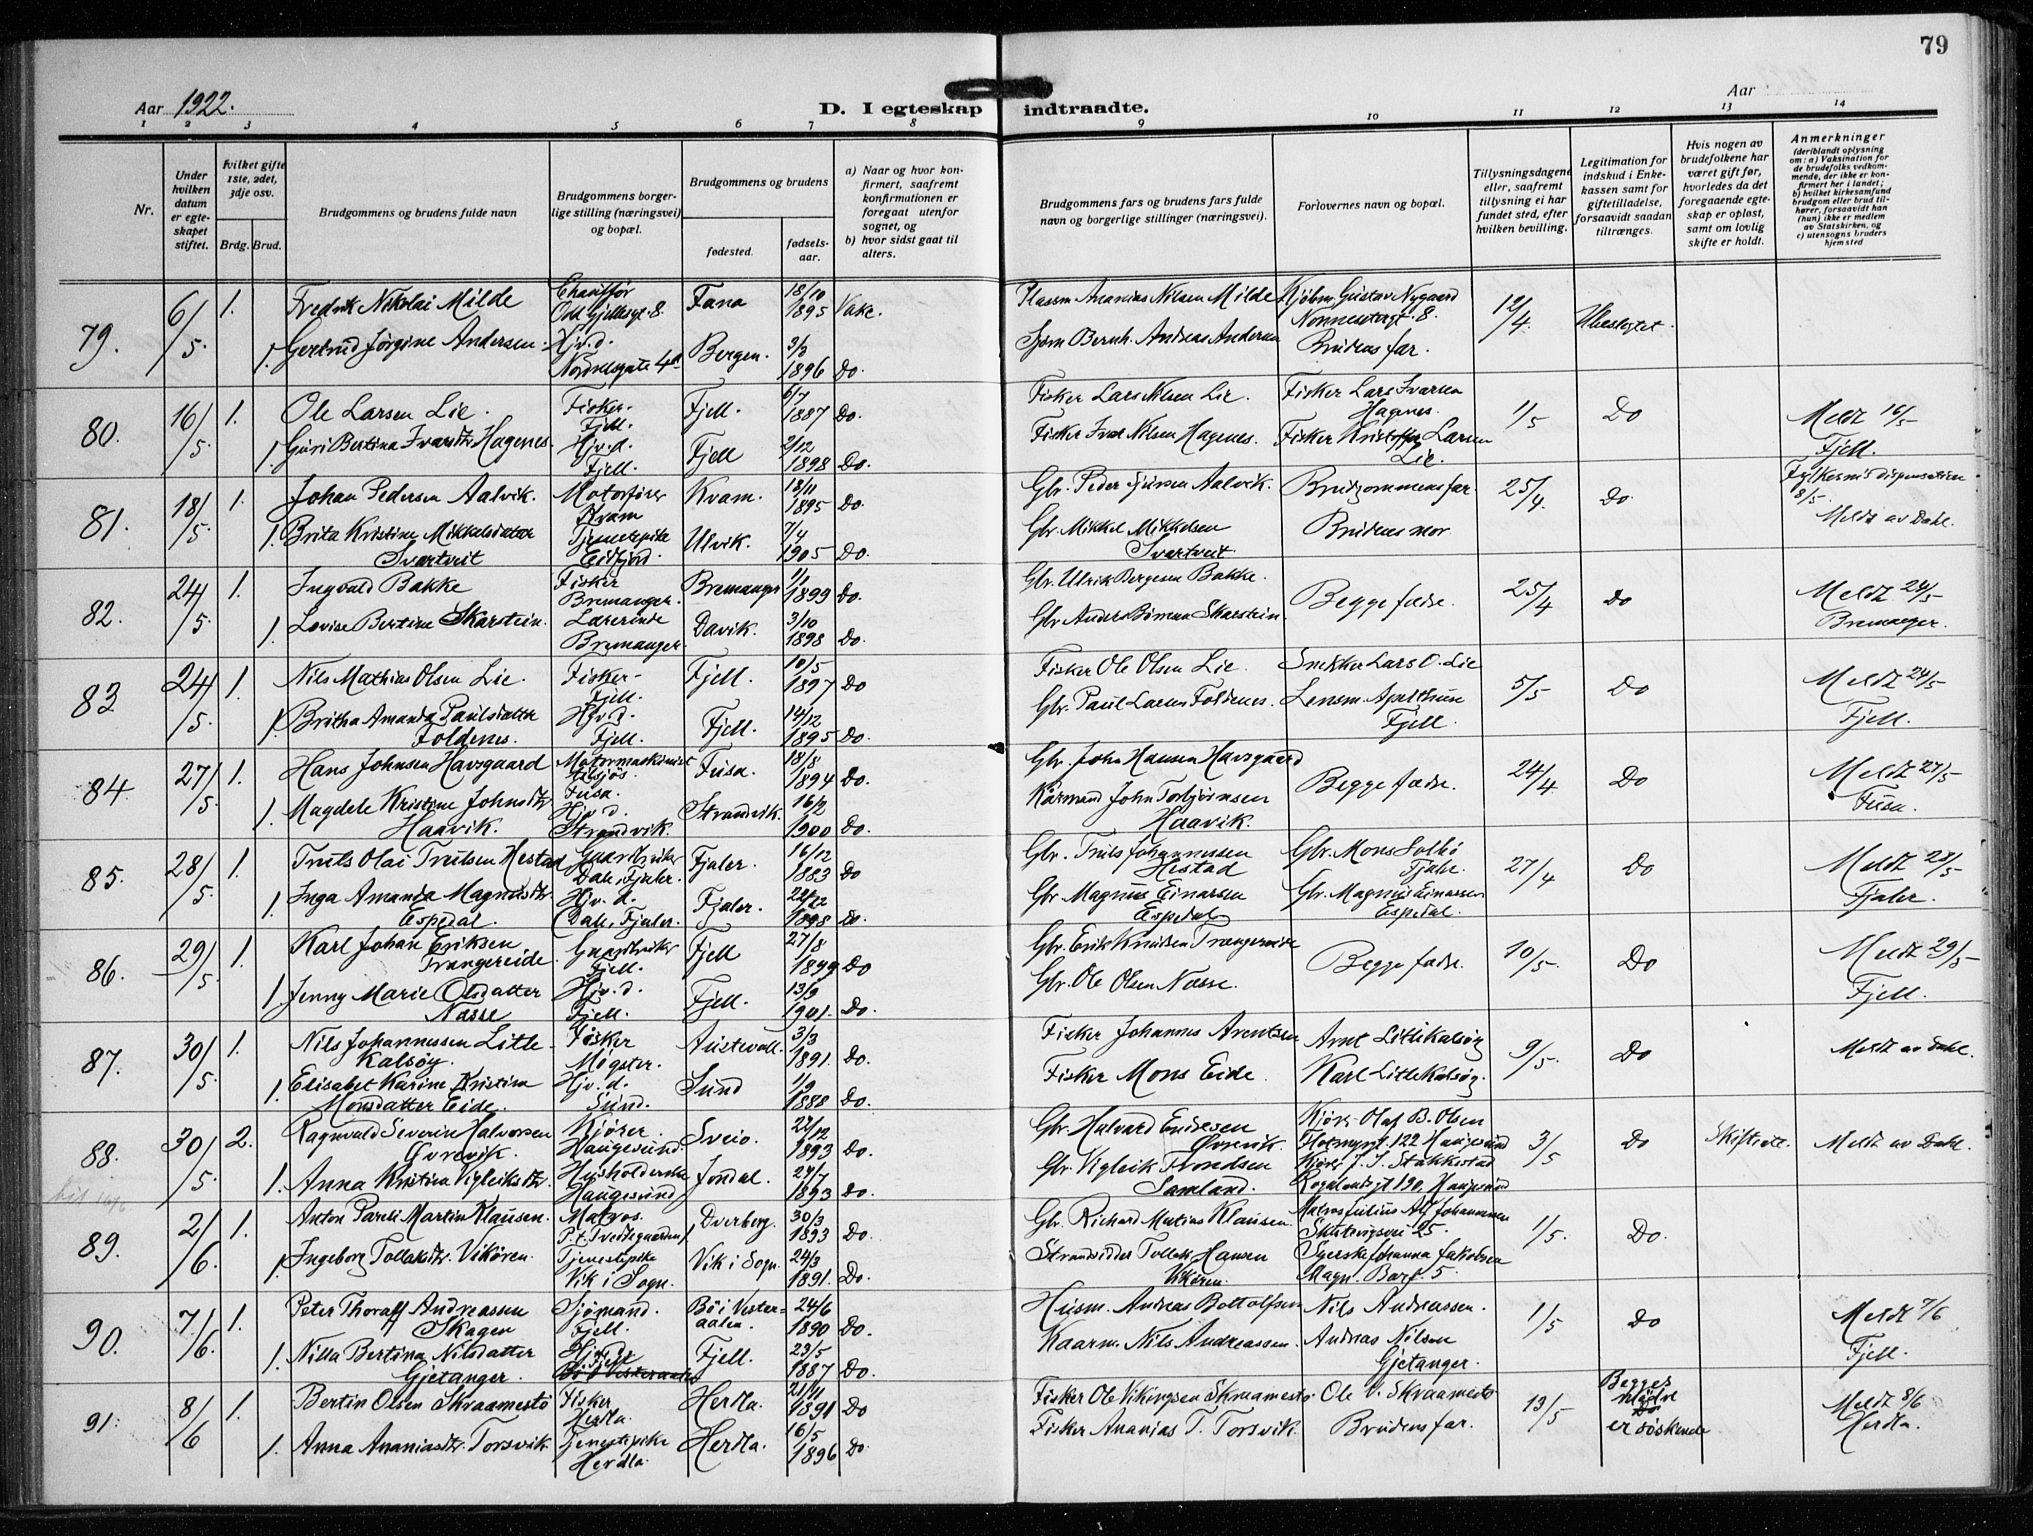 79
Aar 1922.
D. I egteskap indtraadte.
Aar
1 2 3 4 5 6 7 8 9 10 11 12 13 14
Nr.
Under hvilken datum er egteskapet stiftet.
hvilket gifte 1ste, 2det, 3dje osv.
Brdg. Brud.
Brudgommens og brudens fulde navn
Brudgommens borgerlige stilling (næringsvei) og bopæl.
Brudgommens og brudens
fødested. fødselsaar.
a) Naar og hvor konfirmert, saafremt konfirmationen er foregaat utenfor sognet, og
b) hvor sidst gaat til alters.
Brudgommens fars og brudens fars fulde navn og borgerlige stillinger (næringsvei).
Forlovernes navn og bopæl.
Tillysningsdagene eller, saafremt tillysning ei har fundet sted, efter hvilken bevilling.
Legitimation for indskud i Enkekassen samt for giftetilladelse, forsaavidt saadan tiltrænges.
Hvis nogen av brudefolkene har været gift før, hvorledes da det foregaaende egteskap er opløst, samt om lovlig skifte er holdt.
Anmerkninger
(deriblandt oplysning om: a) Vaksination for de brudefolks vedkommende, der ikke er konfirmert her i landet; b) hvilket kirkesamfund brudgom eller brud tilhører, forsaavidt han (hun) ikke er medlem av Statskirken, og c) utensogns bruders hjemsted
79. 6/5 1. Fredrik Nikolai Milde Chauffør Odd Gjellesgt. 8. Fana 18/10 1895 Vake. Plassm Ananias Nilsen Milde Kjøbm. Gustav Nygaard Nonnesetergt. 8. 12/4. Ubeslegtet.
1. Gertrud Jørgine Andersen Hjv.d. Nordnesgate 4a Bergen. 3/3 1896 Do. Sjøm Bernh. Andreas Andersen Brudens far.
80. 16/5 1. Ole Larsen Lie. Fisker. Fjell. Fjell. 6/7 1887 Do. Fisker Lars Nilsen Lie. Fisker Lars Ivarsen Hagenes. 1/5 Do Meldt 16/5 Fjell.
1. Guri Bertina Ivarsdtr. Hagenes. Hjv.d. Fjell. Fjell 2/12 1898 Do. Fisker Ivar Nilsen Hagenes. Fisker Kristoffer Larsen Lie.
81. 18/5 1. Johan Pedersen Aalvik. Motorfører Kvam Kvam. 18/11 1895 Do. Gbr. Peder Aalvik. Brudgommens far. 25/4. Do. Fylkesm's dispensation 8/5. Meldt av Dahl.
1. Brita Kristine Mikkelsdatter Svartveit Tjenestepike Eidfjord. Ulvik. 7/4 1905 Do. Gbr. Mikkel Mikkelsen Svartveit Brudens mor
82. 24/5. 1. Ingvald Bakke Fisker Bremanger. Bremanger 1/1 1899 Do. Gbr. Ulrik Bergesen Bakke. Begge fædre. 25/4 Do Meldt 24/5 Bremanger.
1. Lovise Bertine Skarstein. Lærerinde Bremanger. Davik. 3/10 1898 Do. Gbr Anders Skarstein.
83 24/5. 1. Nils Mathias Olsen Lie. Fisker- Fjell. Fjell. 10/5 1897 Do Fisker Ole Olsen Lie. Snekker Lars O. Lie 5/5 Do Meldt 24/5 Fjell.
1. Britha Amanda Paulsdatter Foldenes. Hjv.d. Fjell. Fjell. 14/12 1895 Do. Gbr. Paul Larsen Foldenes. Lensm. Apelthun Fjell.
84. 27/5. 1. Hans Johnsen Havsgaard Motormaskinist Fusa. Fusa. 18/8 1894 Do. Gbr. John Hansen Havsgaard Begge fædre. 24/4 Do Meldt 27/5 Fusa.
1. Magdele Kristine Johnsdtr. Haavik. Hjv.d. Strandvik. Strandvik. 16/2 1900 Do. Kårmand John Torbjørnsen Haavik.
85. 28/5. 1. Truls Olai Trulsen Hestad Gaardbruker Dale, Fjaler. Fjaler. 16/12 1883 Do Gbr. Truls Johannessen Hestad Gbr. Mons Solbø Fjaler. 27/4 Do Meldt 28/5 Fjaler.
1. Inga Amanda Magnusdtr. Espedal. Hjv. d. Dale, Fjaler. Fjaler. 22/12 1898 Do. Gbr. Magnus Einarsen Espedal Gbr. Magnus Einarsen Espedal.
86. 29/5. 1. Karl Johan Eriksen Trangereide. Gaardbruker Fjell. Fjell 27/8 1899 Do Gbr. Erik Knudsen Trangereide Begge fædre. 10/5. Do Meldt 29/5 Fjell.
1. Jenny Marie Olsdatter Nasse Hjv.d. Fjell. Fjell. 13/9 1901. Do. Gbr. Ole Olsen Nasse.
87. 30/5. 1. Nils Johannessen Litle-Kalsøy. Fisker Møgster. Austevoll. 3/3 1891. Do. Fisker Johannes Arentsen Arnt Litlekalsøy 9/5. Do Meldt av Dahl.
1. Elisabet Karine Kristina Monsdatter Eide. Hjv. d. Sund. Sund 1/9 1888 Do. Fisker Mons Eide. Karl Litlekalsøy.
88. 30/5. 2. Ragnvald Severin Halvorsen Øvrevik. Kjører. Haugesund. Sveio. 22/12 1893 Do. Gbr. Halvard Endresen Øvrevik. Kjører Olaf B. Olsen Flotmyrgt. 122 Haugesund 3/5 Do Skiftedt. Meldt av Dahl.
1. Anna Kristina Vigleiksdtr. Husholderske Haugesund Jondal. 24/7 1893 Do. Gbr. Vigleik Trondsen Samland. Kjører J. J. Stakkestad Rogalandsgt 190, Haugesund
89. 2/6 1. Anton Pareli Martin Klausen. Matros. P.t. Tveitegaarden Dverberg. 30/3 1893 Do. Gbr. Richard Matias Klausen. Matros Julius Alf Johannesen Skutevigsvei 25. 1/5. Do.
1. Ingeborg Tollaksdtr. Vikøren. Tjenestepike Vik i Sogn. Vik i Sogn 24/3 1891. Do. Strandsidder Tollak Hansen Vikøren. Syerske Johanna Jakobsen Magn. Barf. 5.
90. 7/6. 1. Peter Thoralf Andreassen Skagen Sjømand. Fjell. Bø i Vesteraalen. 24/6 1890 Do. Husm. Andreas Bottolfsen Nils Andreassen. 1/5 Do Meldt 7/6 Fjell.
1. Nilla Bertina Nilsdatter Gjetanger. Hjv.d. Fjell Bø i Vesteraalen Fjell. 23/5 1887 Do. Kaarm. Nils Andreassen. Andreas Nilsen Gjetanger.
91. 8/6 1. Bertin Olsen Skraamestø Fisker Herdla. Herdla. 21/11 1891 Do Fisker Ole Vikingsen Skraamestø Ole V. Skraamestø 13/5 Begges mødre Do er søskende Meldt 8/6 Herdla.
1. Anna Ananiasdtr. Torsvik. Tjenestepike Herdla. Herdla. 16/5 1896 Do. Fisker Ananias T. Torsvik. Brudens far.